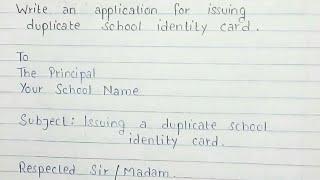 Write an application for issuing
duplicate school identity card.
To
The Principal
Your School Name
Subject: Issuing a duplicate school
identity card.
Respected Sir/Madam.